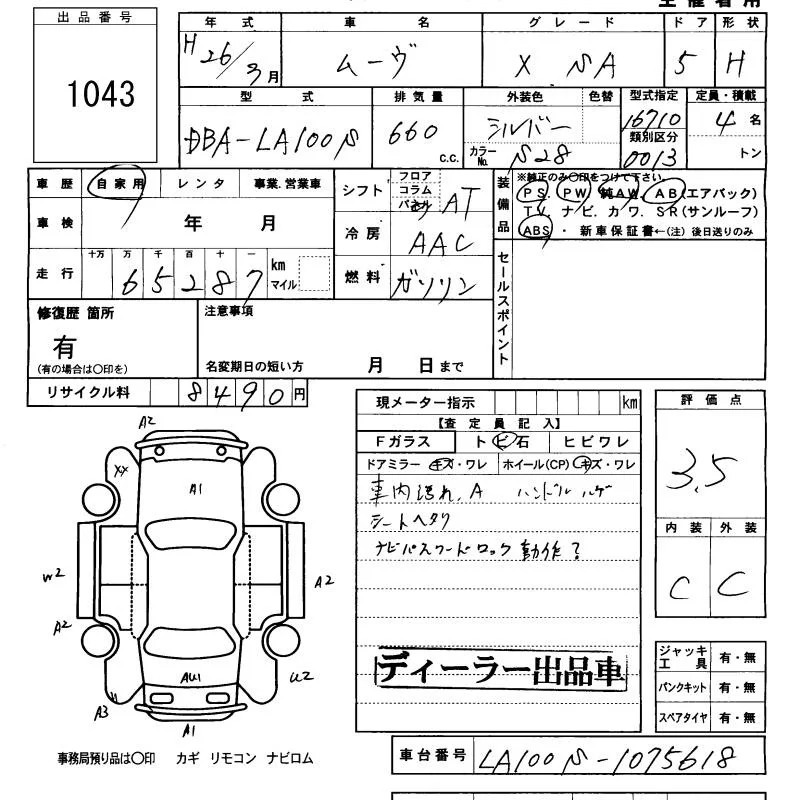 出品番号
1043
年式 車名 グレード ドア 形状
H 26/9月 ムーヴ X SA 5 H
型式 排気量 外装色 色替 型式指定 定員・積載
DBA-LA100S 660 c.c. シルバー 16710 4名
カラーNo. S28 類別区分 0013 トン
車歴 自家用 レンタ 事業.営業車
車検 年 月
走行 十万 万 千 百 十 一 km マイル
6 5 2 8 7
シフト フロア コラム パネル AT
冷房 AAC
燃料 ガソリン
装備品 ※純正のみ〇印をつけて下さい。
PS. PW. 純AW. AB(エアバック)
TV. ナビ. カワ. SR(サンルーフ)
ABS ・ 新車保証書←(注) 後日送りのみ
セールスポイント
修復歴 箇所
有
(有の場合は〇印を)
注意事項
名変期日の短い方 月 日まで
リサイクル料 8 4 9 0 円
現メーター指示 km
【査定員記入】
Fガラス トビ石 ヒビワレ
ドアミラー キズ・ワレ ホイール(CP) キズ・ワレ
車内汚れ、A ハンドルハゲ
シートヘタリ
ナビパスワードロック 動作?
ディーラー出品車
評価点
3.5
内装 外装
C C
ジャッキ工具 有・無
パンクキット 有・無
スペアタイヤ 有・無
A2
XX
A1
W2
A2
A2
AU1
U2
A3
A1
事務局預り品は〇印 カギ リモコン ナビロム
車台番号 LA100S-1075618